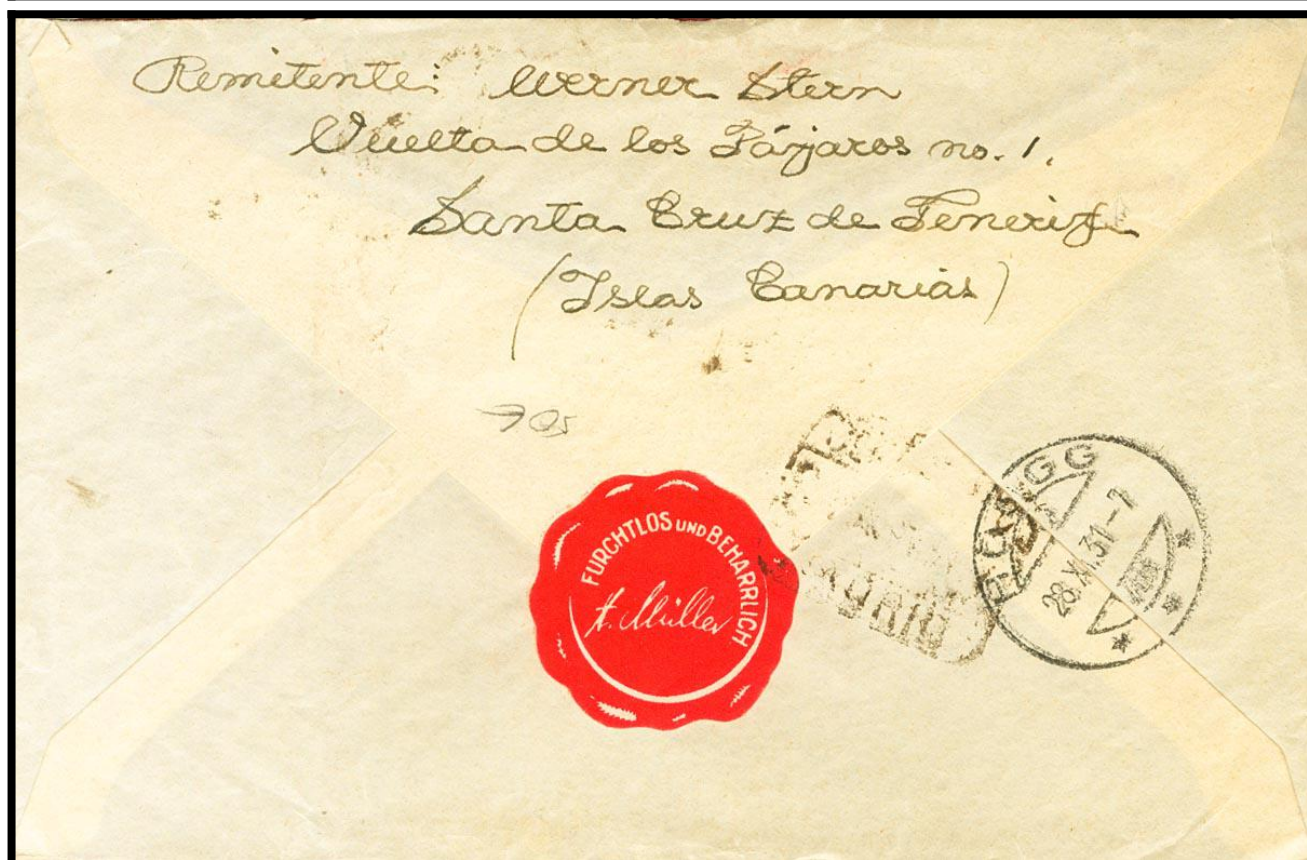 Remitente: Werner Stern
Vuelta de los Pájaros no. 1.
Santa Cruz de Tenerife
(Islas Canarias)
705
FURCHTLOS UND BEHARRLICH
A. Müller
MADRID
28.XI.31-7